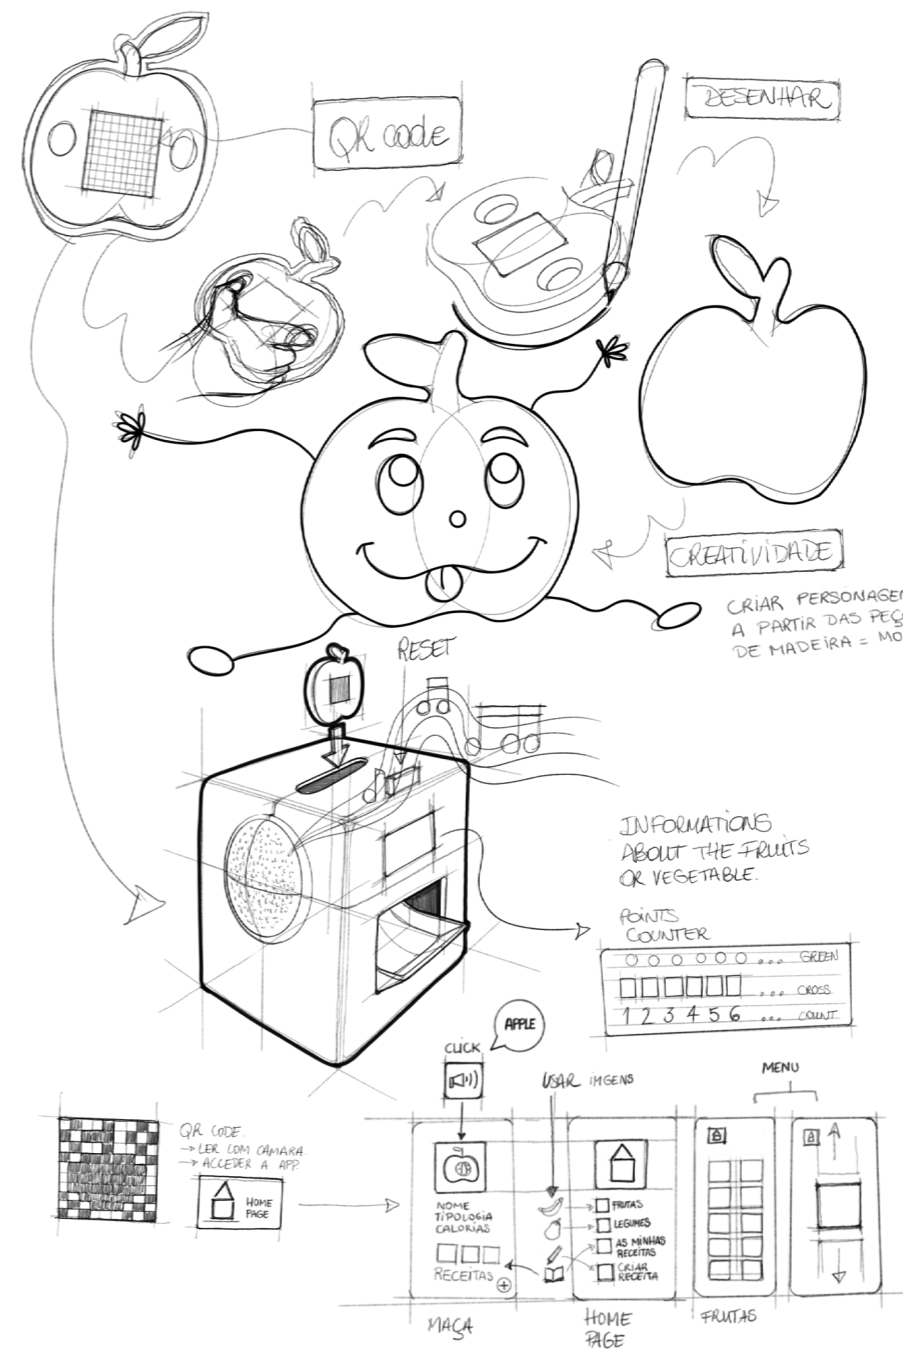 QR code
DESENHAR
CREATIVIDADE
CRIAR PERSONAGEN
A PARTIR DAS PEÇ
DE MADEIRA = MO
RESET
INFORMATIONS
ABOUT THE FRUITS
OR VEGETABLE.
POINTS
COUNTER
GREEN
CROSS
1 2 3 4 5 6 ... COUNT
APPLE
CLICK
USAR IMGENS
MENU
QR CODE.
→ LER COM CAMARA.
→ ACCEDER A APP.
HOME
PAGE
NOME
TIPOLOGIA
CALORIAS
RECEITAS
FRUTAS
LEGUMES
AS MINHAS
RECEITAS
CRIAR
RECEITA
MAÇA
HOME
PAGE
FRUTAS